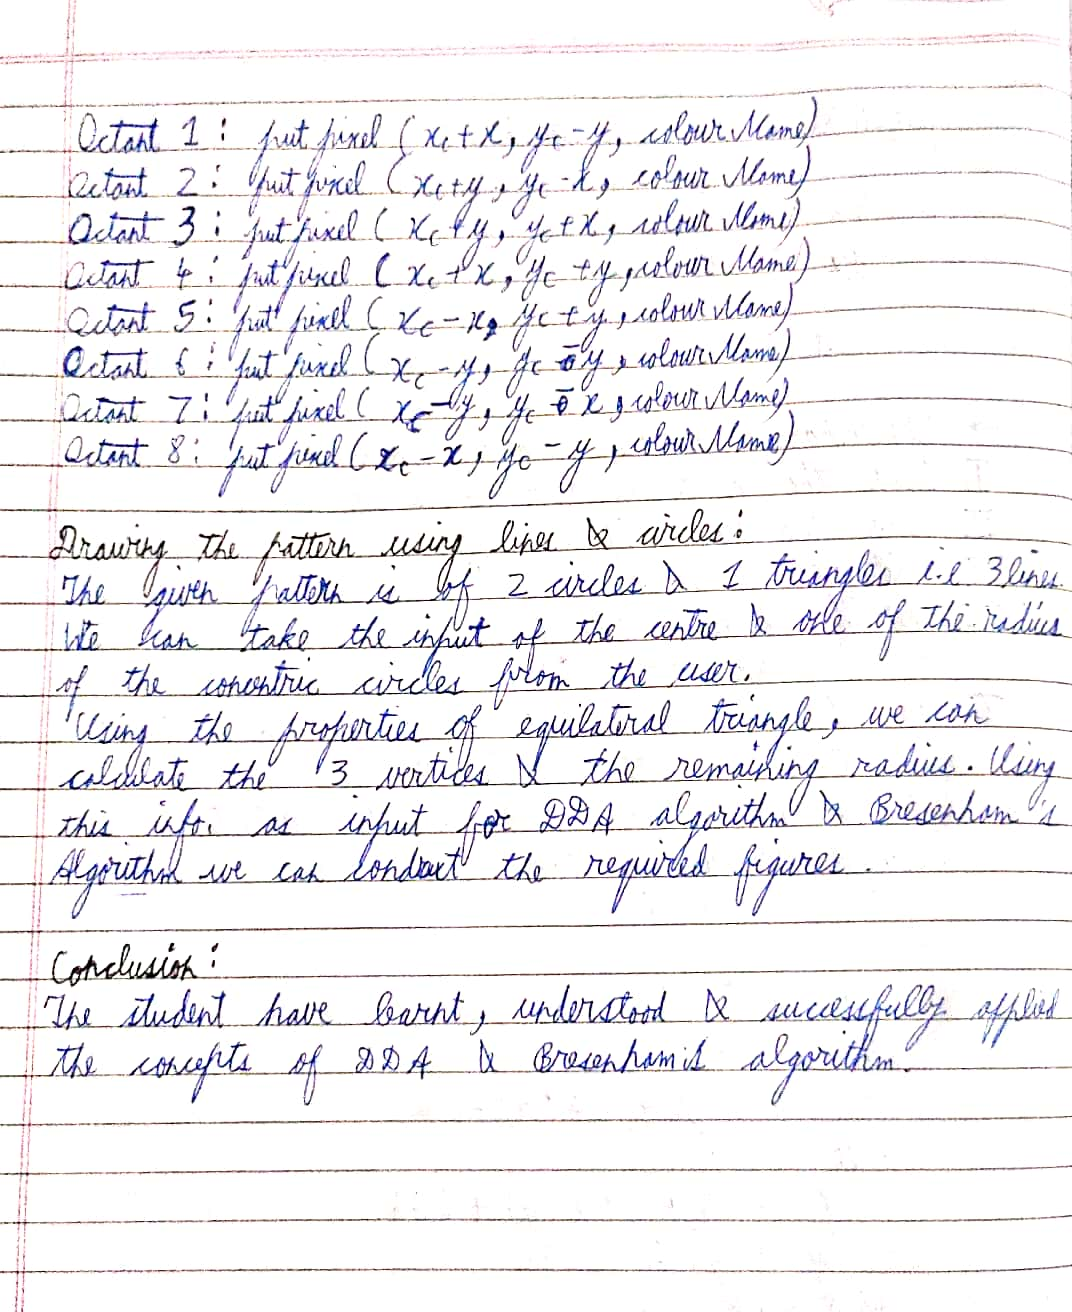 Octant 1 : put pixel (xc + x, yc - y, colour Name)
Octant 2 : put pixel (xc + y, yc - x, colour Name)
Octant 3 : put pixel (xc + y, yc + x, colour Name)
Octant 4 : put pixel (xc + x, yc + y, colour Name)
Octant 5 : put pixel (xc - x, yc + y, colour Name)
Octant 6 : put pixel (xc - y, yc y, colour Name)
Octant 7 : put pixel (xc - y, yc x, colour Name)
Octant 8 : put pixel (xc - x, yc - y, colour Name)
Drawing the pattern using lines & circles :
The given pattern is of 2 circles & 1 triangles i.e 3 lines.
We can take the input of the centre & one of the radius
of the concentric circles from the user.
Using the properties of equilateral triangle, we can
calculate the 3 vertices & the remaining radius. Using
this info. as input for DDA algorithm & Bresenham's
Algorithm we can the required figures.
Conclusion :
The student have learnt, understood & successfully applied
the concepts of DDA & Bresenham's algorithm.